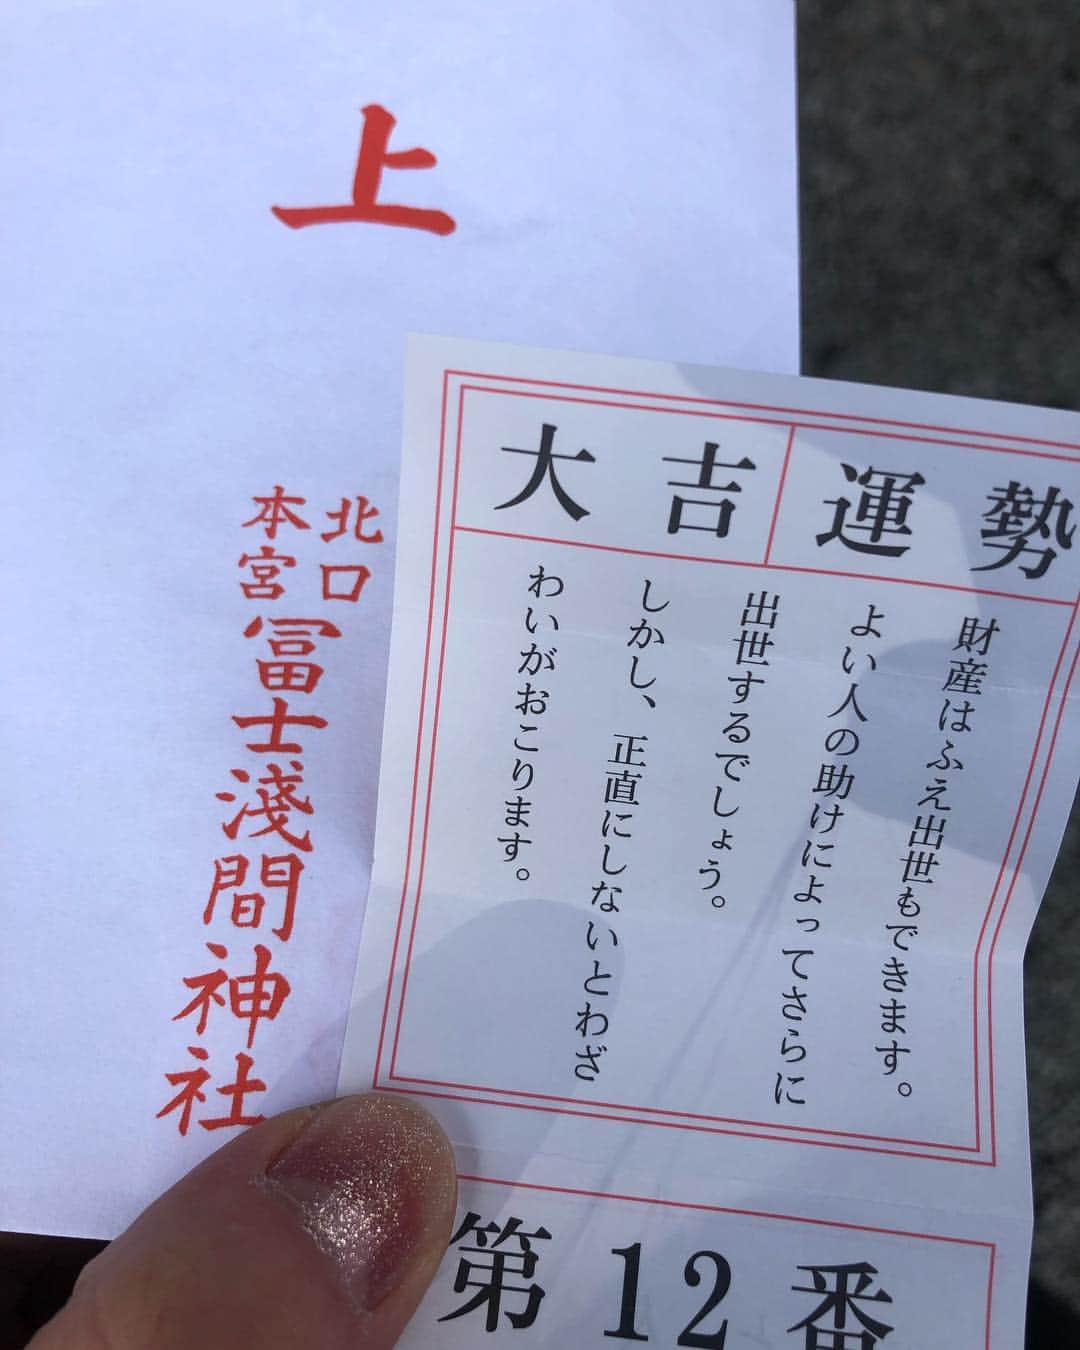 上
北口
本宮
冨士淺間神社
大吉
運勢
財産はふえ出世もできます。
よい人の助けによってさらに
出世するでしょう。
しかし、正直にしないとわざ
わいがおこります。
第12番